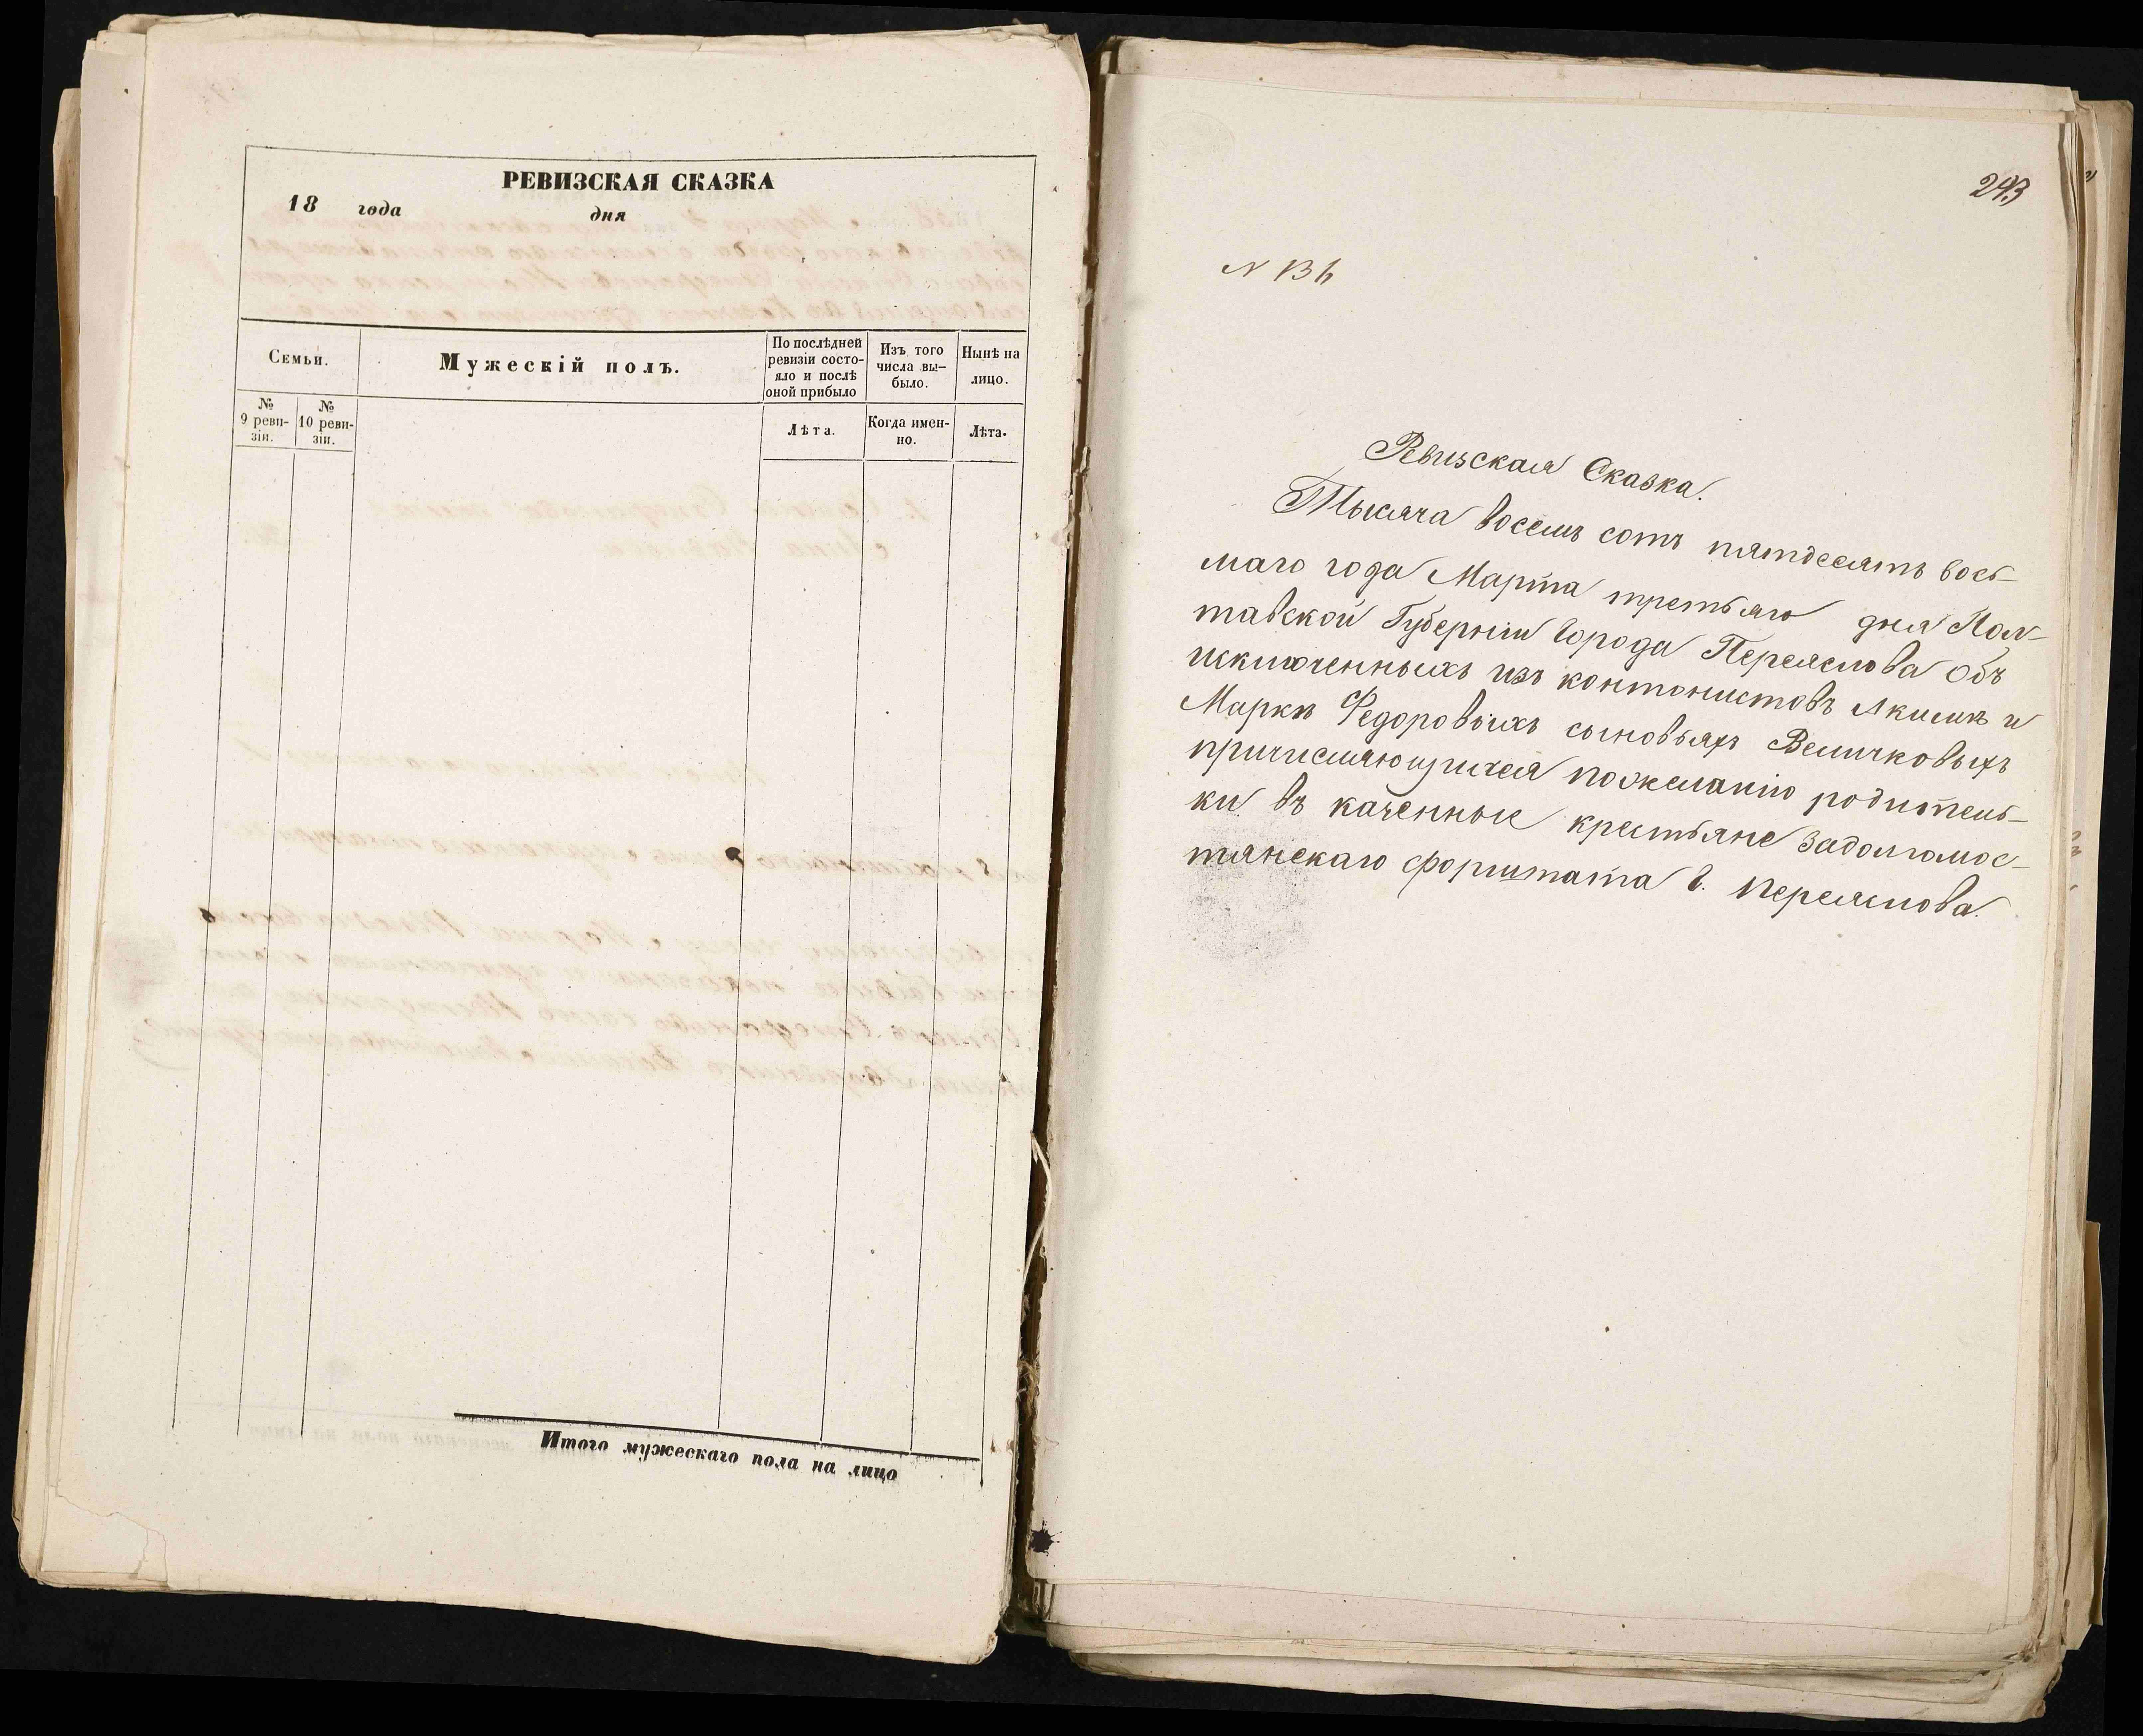 РЕВИЗСКАЯ СКАЗКА
18 года дня
Семьи.
Мужескій полъ.
По послѣдней
ревизіи состо-
яло и послѣ
оной прибыло
Изъ того
числа вы-
было.
Нынѣ на
лицо.
№
9 реви-
зіи.
№
10 реви-
зіи.
Лѣта.
Когда имен-
но.
Лѣта.
Итого мужескаго пола на лицо
243
N 136
Ревизская Сказка.
Тысяча восемь сотъ пятдесятъ вось-
маго года Марта третьяго дня Пол-
тавской Губерніи города Переяслова объ
исключенныхъ изъ контонистовъ Якимѣ и
Маркѣ Федоровыхъ сыновьяхъ Величковыхъ
причисляющихся пожеланію родитель-
ки въ каченные крестьяне Задолгомос-
тянскаго форштата г. Переяслова.